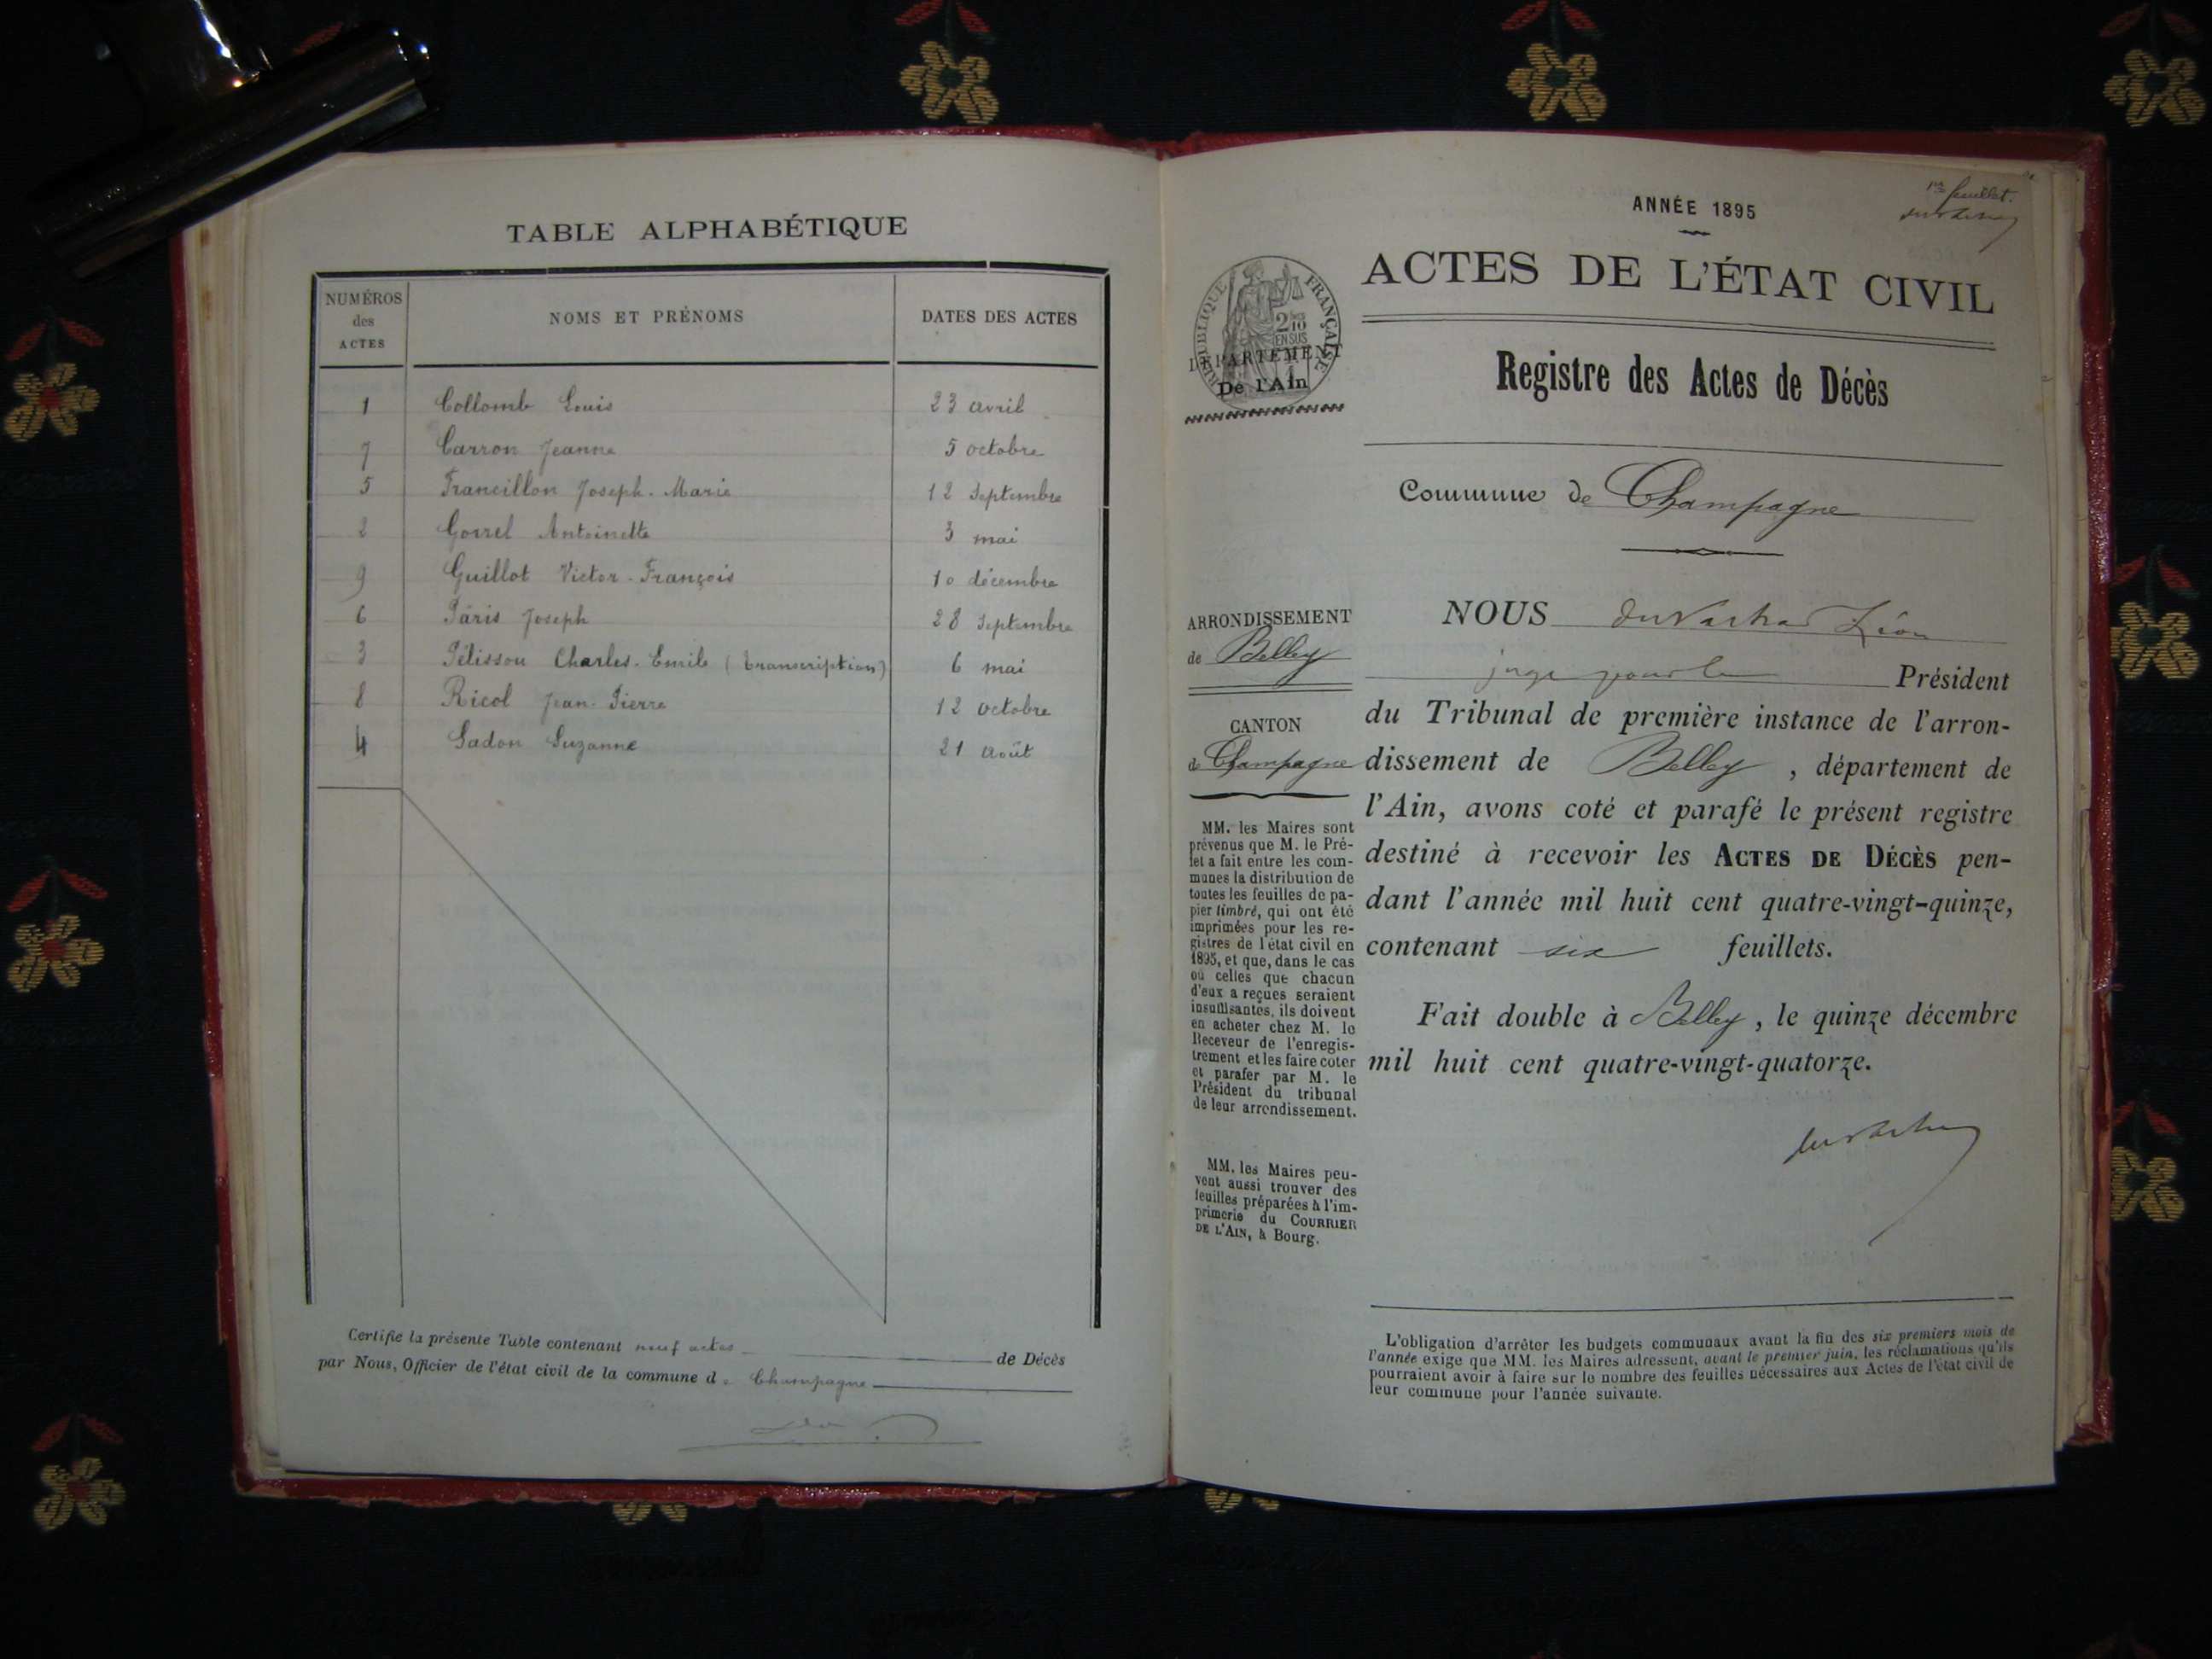 TABLE ALPHABÉTIQUE
NUMÉROS des ACTES
NOMS ET PRÉNOMS
DATES DES ACTES
1 Collomb Louis 23 avril
7 Carron Jeanne 5 octobre
5 Francillon Joseph-Marie 12 Septembre
2 Gorrel Antoinette 3 mai
9 Guillot Victor-François 10 décembre
6 Pâris Joseph 28 Septembre
3 Pélisson Charles-Emile (transcription) 6 mai
8 Ricol Jean-Pierre 12 octobre
4 Sadon Suzanne 21 août
Certifie la présente Table contenant neuf actes de Décès
par Nous, Officier de l'état civil de la commune de Champagne
1er feuillet.
ANNÉE 1895
ACTES DE L'ÉTAT CIVIL
RÉPUBLIQUE FRANÇAISE
2/10 EN SUS
DÉPARTEMENT
De l'Ain
Registre des Actes de Décès
Commune de Champagne
ARRONDISSEMENT
de Belley
CANTON
de Champagne
MM. les Maires sont
prévenus que M. le Pré-
fet a fait entre les com-
munes la distribution de
toutes les feuilles de pa-
pier timbré, qui ont été
imprimées pour les re-
gistres de l'état civil en
1895, et que, dans le cas
où celles que chacun
d'eux a reçues seraient
insuffisantes, ils doivent
en acheter chez M. le
Receveur de l'enregis-
trement et les faire coter
et parafer par M. le
Président du tribunal
de leur arrondissement.
MM. les Maires peu-
vent aussi trouver des
feuilles préparées à l'im-
primerie du COURRIER
DE L'AIN, à Bourg.
NOUS Léon
juge pour le Président
du Tribunal de première instance de l'arron-
dissement de Belley, département de
l'Ain, avons coté et parafé le présent registre
destiné à recevoir les ACTES DE DÉCÈS pen-
dant l'année mil huit cent quatre-vingt-quinze,
contenant six feuillets.
Fait double à Belley, le quinze décembre
mil huit cent quatre-vingt-quatorze.
L'obligation d'arrêter les budgets communaux avant la fin des six premiers mois de
l'année exige que MM. les Maires adressent, avant le premier juin, les réclamations qu'ils
pourraient avoir à faire sur le nombre des feuilles nécessaires aux Actes de l'état civil de
leur commune pour l'année suivante.